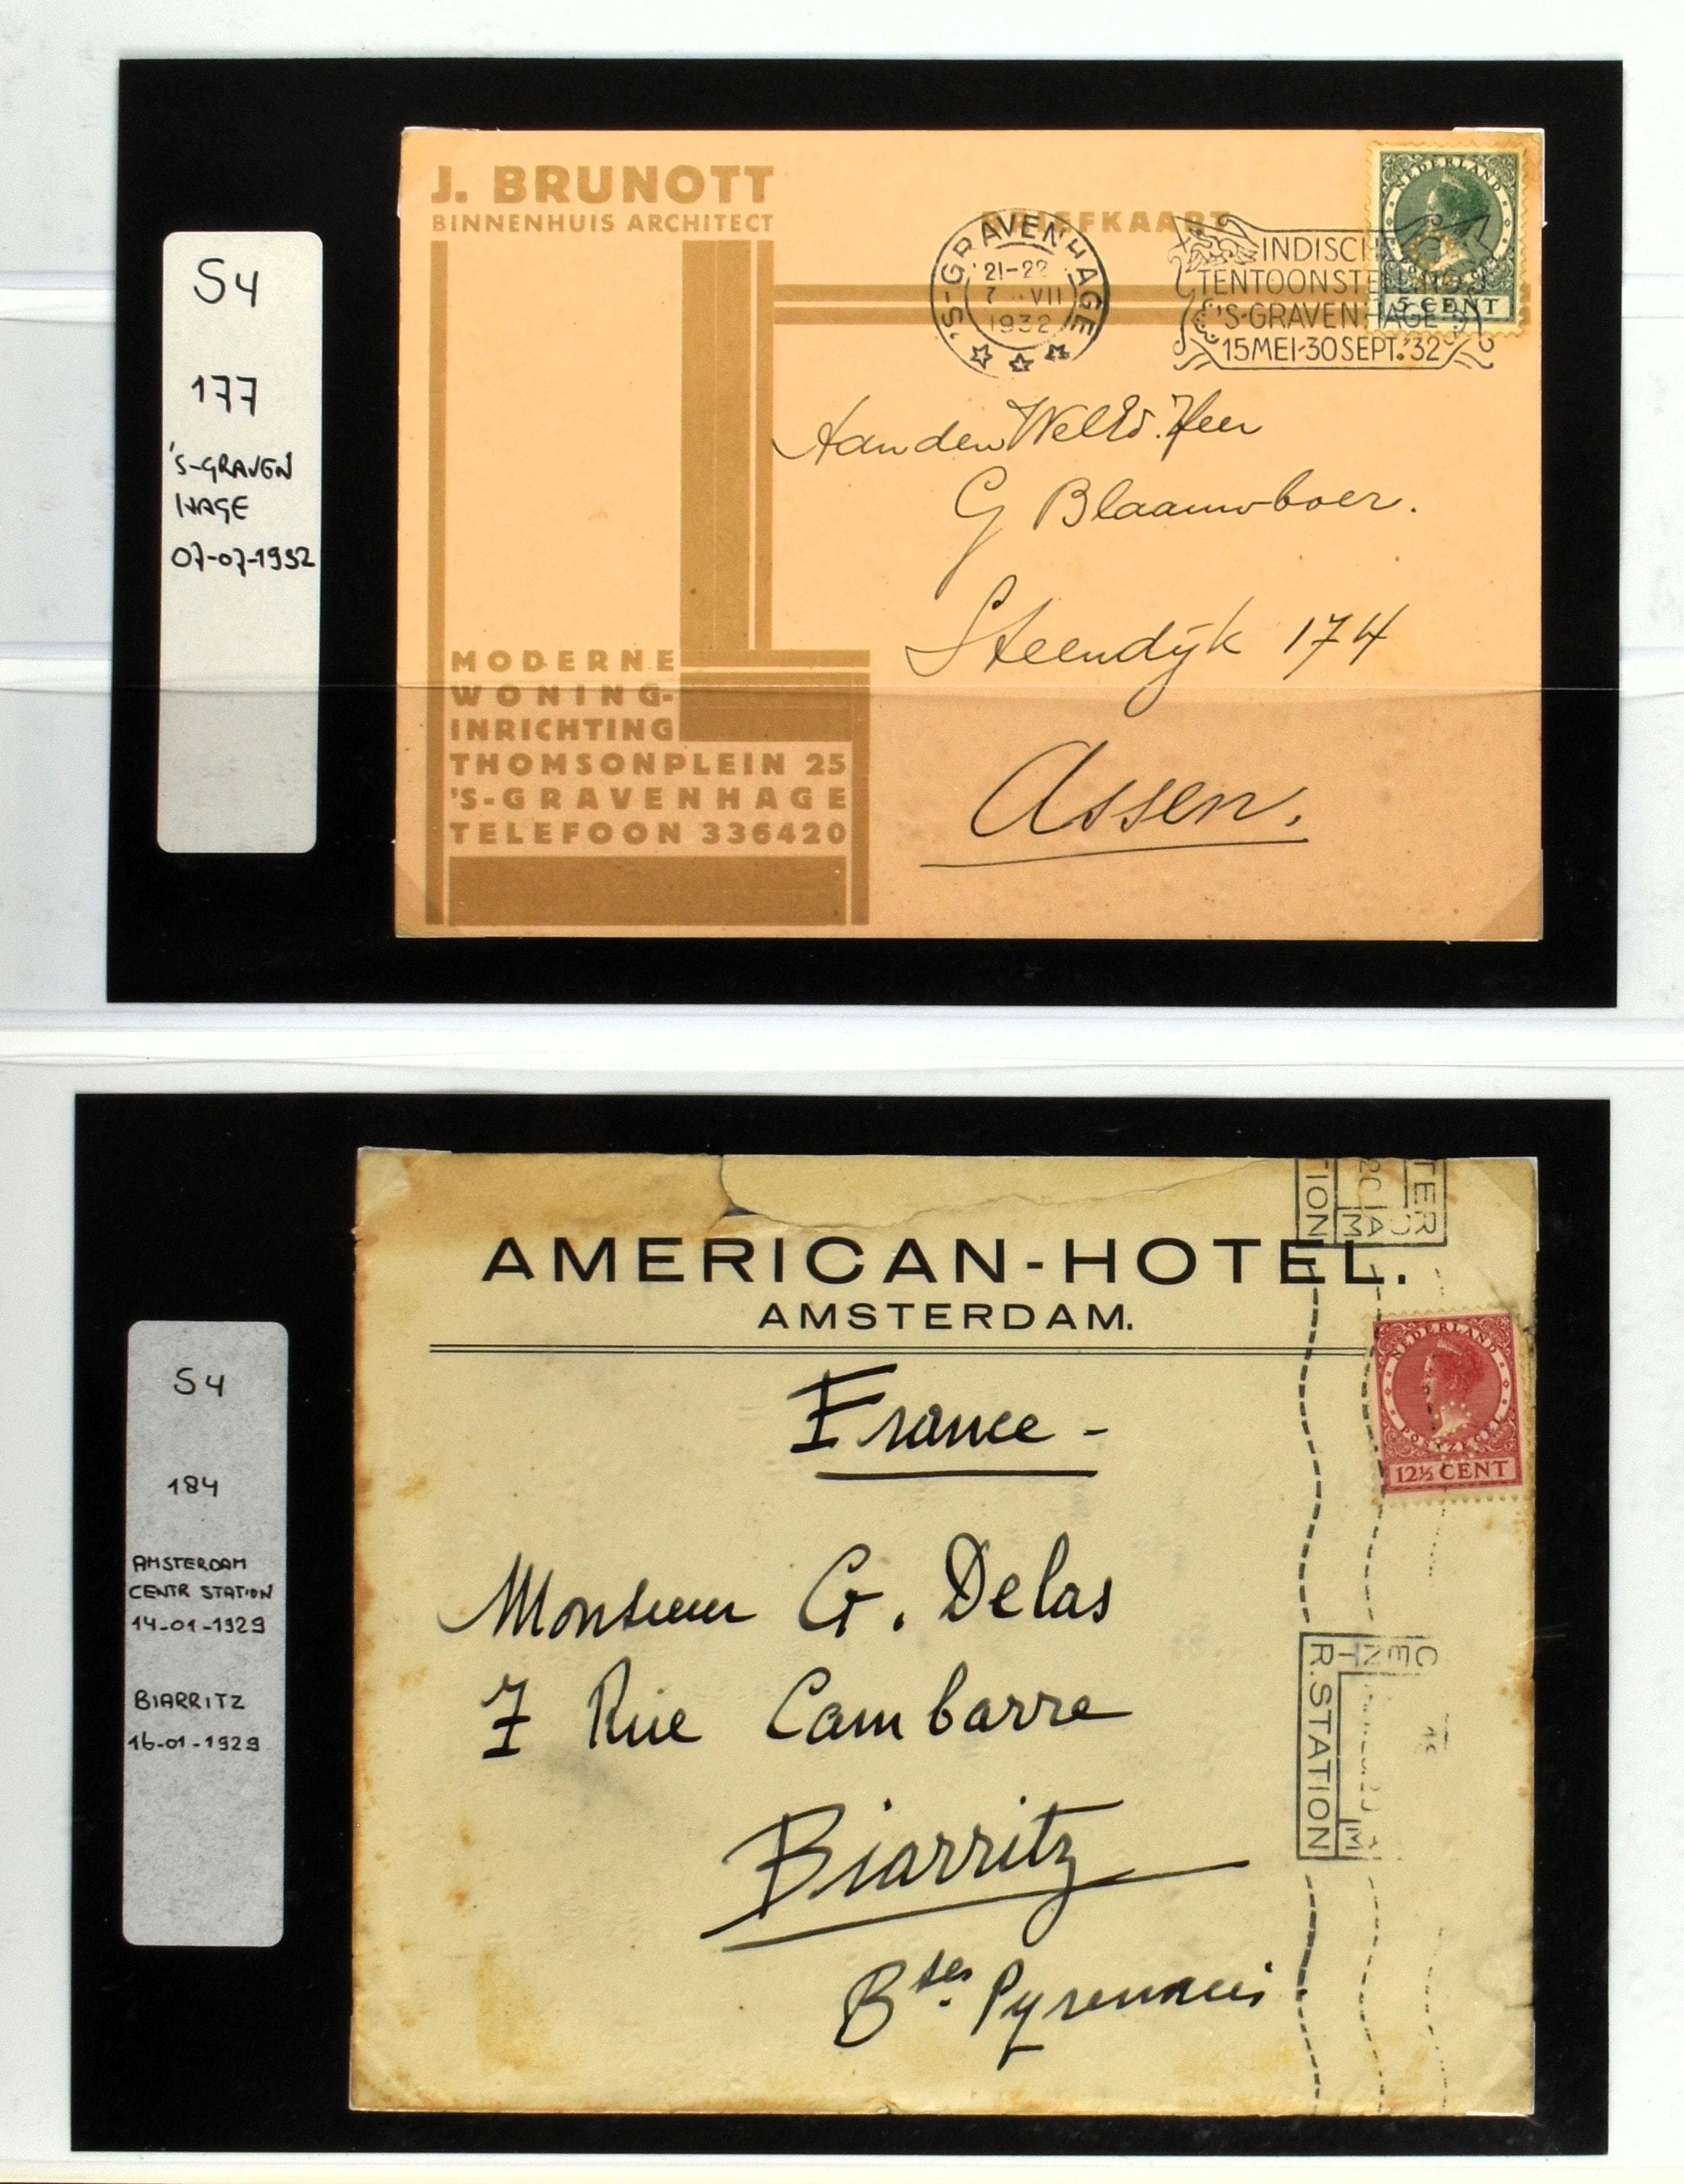 S4
177
'S-GRAVEN
HAGE
07-07-1932
J. BRUNOTT
BINNENHUIS ARCHITECT
BRIEFKAART
'S-GRAVENHAGE
21-22
7 VII
1932
INDISCHE
TENTOONSTELLING
'S-GRAVENHAGE
15MEI-30SEPT.'32
NEDERLAND
5 CENT
Aan den WelEd. Heer
G Blaauwboer.
Steendijk 174
Assen.
MODERNE
WONING-
INRICHTING
THOMSONPLEIN 25
'S-GRAVENHAGE
TELEFOON 336420
S4
184
AMSTERDAM
CENTR STATION
14-01-1929
BIARRITZ
16-01-1929
AMERICAN-HOTEL.
AMSTERDAM.
NEDERLAND
POSTZEGEL
12½ CENT
France -
Monsieur G. Delas
7 Rue Cambarre
Biarritz
Bses. Pyrennées
CENT
R.STATION